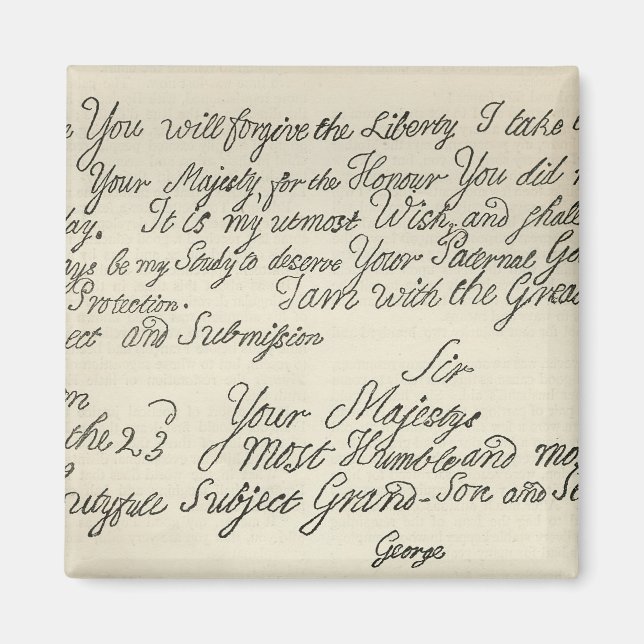 You will forgive the Liberty I take
Your Majesty, for the Honour You did
day. It is my utmost Wish, and shall
ays be my Study to deserve Your Paternal Go
Protection. I am with the Grea
ect and Submiſsion
Sir
on
Your Majestys
the 23
Most Humble and mo
utyfull Subject Grand-Son and Se
George